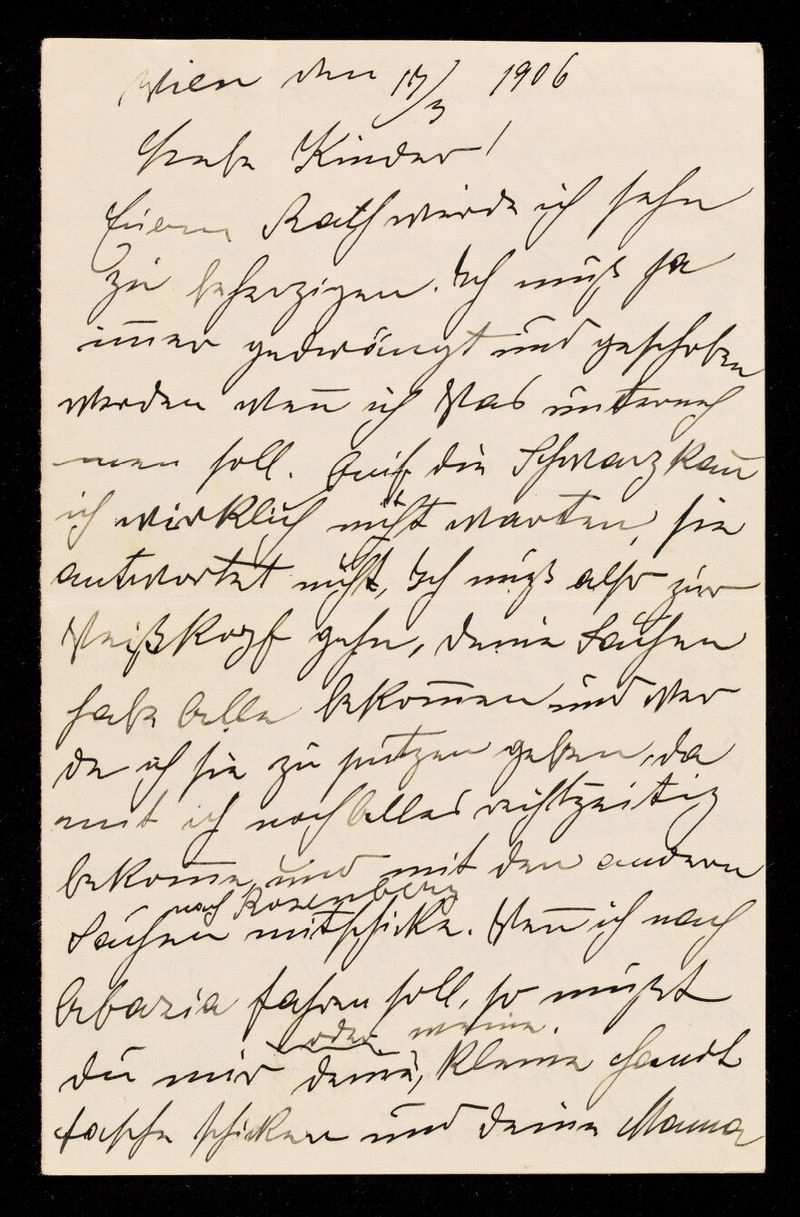 Wien den 17/3 1906
Liebe Kinder!
Euern Rath werde ich sehr
zu beherzigen. Ich muß ja
im̅er gedrängt und geschoben
werden wen̅ ich Was unterneh
men soll. Auf die Schwarz kan̅
ich wirklich nicht warten, sie
antwortet nicht, Ich muß also zur
Weißkopf gehn, deine Sachen
habe Alle bekom̅en und wer
de ich sie zu putzen geben, da
mit ich noch Alles rechtzeitig
bekom̅e, und mit den andern
nach Rosenberg
Sachen mitschicke. Wen̅ ich nach
Abazia fahren soll, so müßt
oder meine.
du mir deine, kleine Handt
tasche schicken und deine Mama